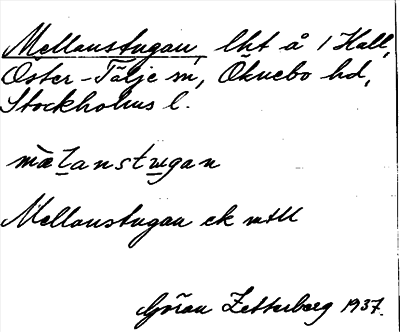 Mellanstugan, lht å 1 Hall,
Öster-Tälje sn, Öknebo hd,
Stockholms l.
mälanstugan
Mellanstugan ek
Göran Zetterberg 1937.